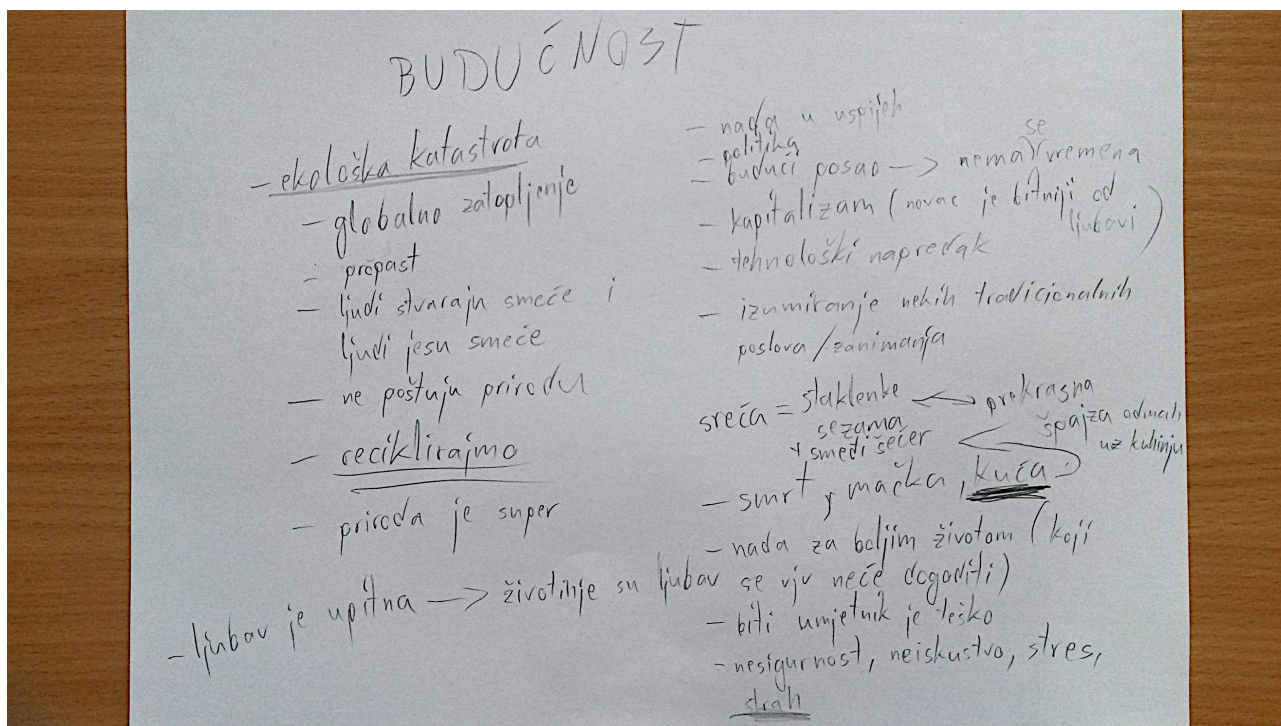 BUDUĆNOST
- ekološka katastrofa
- globalno zatopljenje
- propast
- ljudi stvaraju smeće i
ljudi jesu smeće
- ne poštuju prirodu
- reciklirajmo
- priroda je super
- ljubav je upitna -> životinje su ljubav
- nada u uspijeh
- politika
- budući posao -> nema se vremena
- kapitalizam (novac je bitniji od
ljubavi)
- tehnološki napredak
- izumiranje nekih tradicionalnih
poslova / zanimanja
sreća = staklenke <-> prekrasna
sezama špajza odmah
+ smeđi šećer uz kuhinju
- smrt, mačka, kuća
- nada za boljim životom (koji
se vjv neće dogoditi)
- biti umjetnik je teško
- nesigurnost, neiskustvo, stres,
strah